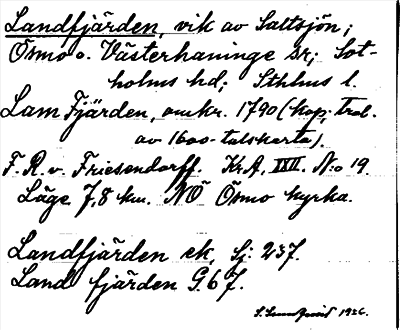 Landfjärden, vik av Saltsjön;
Ösmo o. Västerhaninge sr; Sot-
holms hd; Sthlms l.
Lam Fjärden, omkr. 1790 (kop. trol.
av 1600-talskarta).
F. R. v. Friesendorff. KrA, XXII. N:o 19.
Läge 7,8 km. NÖ Ösmo kyrka.
Landfjärden ek, Sj: 237.
Land fjärden G. 67.
1926.